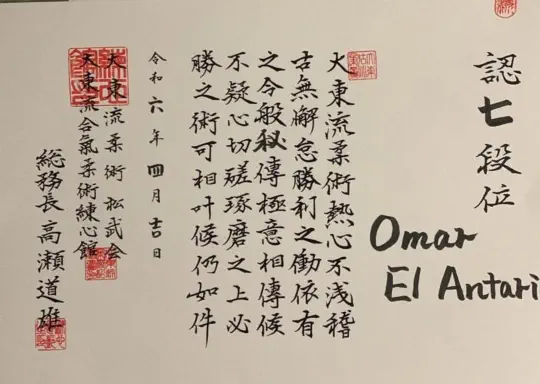 認七段位
Omar
El Antari
大東流柔術熱心不浅稽
古無懈怠勝利之働依有
之今般秘傳極意相傳候
不疑心切磋琢磨之上必
勝之術可相叶候仍如件
令和六年四月吉日
大東流柔術松武会
大東流合氣柔術練心館
総務長高瀬道雄